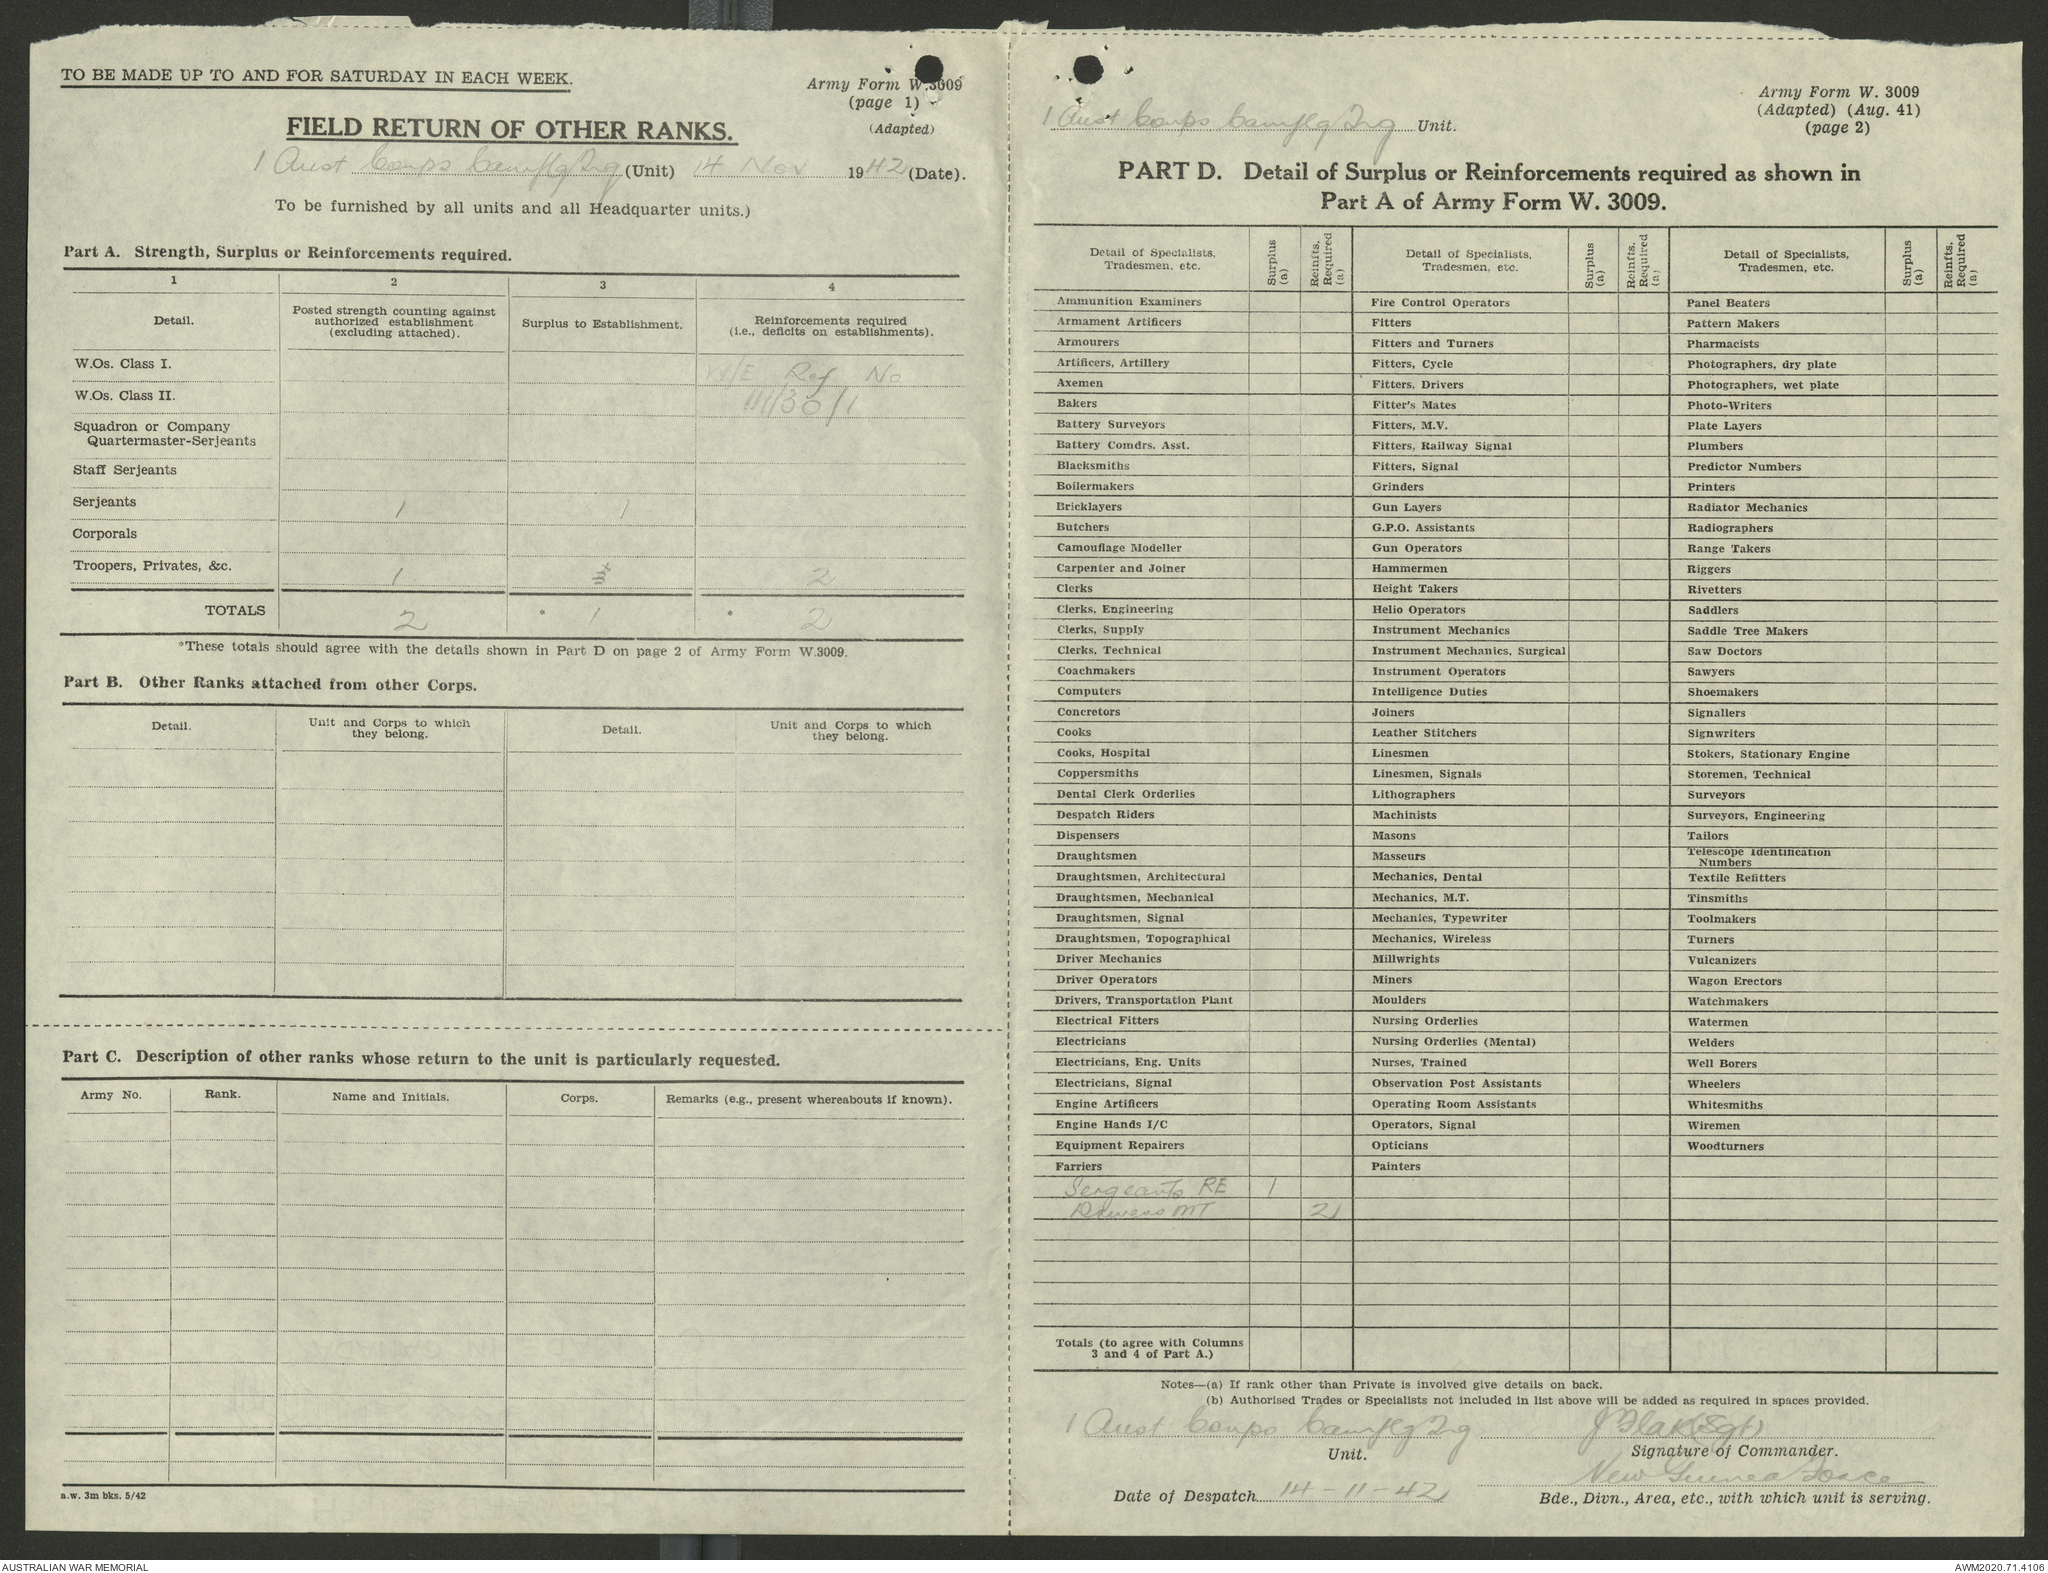 TO BE MADE UP TO AND FOR SATURDAY IN EACH WEEK.
Army Form W.3009
(page 1)
(Adapted)
FIELD RETURN OF OTHER RANKS.
1 Aust Corps Camflg Trg (Unit) 14 Nov 1942 (Date).
To be furnished by all units and all Headquarter units.)
Part A. Strength, Surplus or Reinforcements required.
1 2 3 4
Detail. Posted strength counting against authorized establishment (excluding attached). Surplus to Establishment. Reinforcements required (i.e., deficits on establishments).
W.Os. Class I. W/E Ref No
W.Os. Class II. 111/30/1
Squadron or Company
Quartermaster-Serjeants
Staff Serjeants
Serjeants 1 1
Corporals
Troopers, Privates, &c. 1 2
TOTALS 2 * 1 * 2
*These totals should agree with the details shown in Part D on page 2 of Army Form W.3009.
Part B. Other Ranks attached from other Corps.
Detail. Unit and Corps to which they belong. Detail. Unit and Corps to which they belong.
Part C. Description of other ranks whose return to the unit is particularly requested.
Army No. Rank. Name and Initials. Corps. Remarks (e.g., present whereabouts if known).
a.w. 3m bks. 5/42
Army Form W. 3009
(Adapted) (Aug. 41)
(page 2)
1 Aust Corps Camflg Trg Unit.
PART D. Detail of Surplus or Reinforcements required as shown in
Part A of Army Form W. 3009.
Detail of Specialists, Tradesmen, etc. Surplus (a) Reinfts. Required (a) Detail of Specialists, Tradesmen, etc. Surplus (a) Reinfts. Required (a) Detail of Specialists, Tradesmen, etc. Surplus (a) Reinfts. Required (a)
Ammunition Examiners Fire Control Operators Panel Beaters
Armament Artificers Fitters Pattern Makers
Armourers Fitters and Turners Pharmacists
Artificers, Artillery Fitters, Cycle Photographers, dry plate
Axemen Fitters, Drivers Photographers, wet plate
Bakers Fitter's Mates Photo-Writers
Battery Surveyors Fitters, M.V. Plate Layers
Battery Comdrs. Asst. Fitters, Railway Signal Plumbers
Blacksmiths Fitters, Signal Predictor Numbers
Boilermakers Grinders Printers
Bricklayers Gun Layers Radiator Mechanics
Butchers G.P.O. Assistants Radiographers
Camouflage Modeller Gun Operators Range Takers
Carpenter and Joiner Hammermen Riggers
Clerks Height Takers Rivetters
Clerks, Engineering Helio Operators Saddlers
Clerks, Supply Instrument Mechanics Saddle Tree Makers
Clerks, Technical Instrument Mechanics, Surgical Saw Doctors
Coachmakers Instrument Operators Sawyers
Computers Intelligence Duties Shoemakers
Concretors Joiners Signallers
Cooks Leather Stitchers Signwriters
Cooks, Hospital Linesmen Stokers, Stationary Engine
Coppersmiths Linesmen, Signals Storemen, Technical
Dental Clerk Orderlies Lithographers Surveyors
Despatch Riders Machinists Surveyors, Engineering
Dispensers Masons Tailors
Draughtsmen Masseurs Telescope Identification Numbers
Draughtsmen, Architectural Mechanics, Dental Textile Refitters
Draughtsmen, Mechanical Mechanics, M.T. Tinsmiths
Draughtsmen, Signal Mechanics, Typewriter Toolmakers
Draughtsmen, Topographical Mechanics, Wireless Turners
Driver Mechanics Millwrights Vulcanizers
Driver Operators Miners Wagon Erectors
Drivers, Transportation Plant Moulders Watchmakers
Electrical Fitters Nursing Orderlies Watermen
Electricians Nursing Orderlies (Mental) Welders
Electricians, Eng. Units Nurses, Trained Well Borers
Electricians, Signal Observation Post Assistants Wheelers
Engine Artificers Operating Room Assistants Whitesmiths
Engine Hands I/C Operators, Signal Wiremen
Equipment Repairers Opticians Woodturners
Farriers Painters
Sergeants RE 1
Drivers MT 2
Totals (to agree with Columns
3 and 4 of Part A.)
Notes—(a) If rank other than Private is involved give details on back.
(b) Authorised Trades or Specialists not included in list above will be added as required in spaces provided.
1 Aust Corps Camflg Trg (Sgt)
Unit. Signature of Commander.
New Guinea Force
Date of Despatch 14-11-42 Bde., Divn., Area, etc., with which unit is serving.
AUSTRALIAN WAR MEMORIAL AWM2020.71.4106